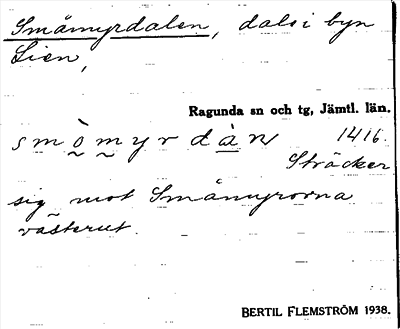 Småmyrdalen, dals i byn
Lien,
Ragunda sn och tg, Jämtl. län.
smòmyrdàn 1416.
Sträcker
sig mot Småmyrorna
västerut.
BERTIL FLEMSTRÖM 1938.